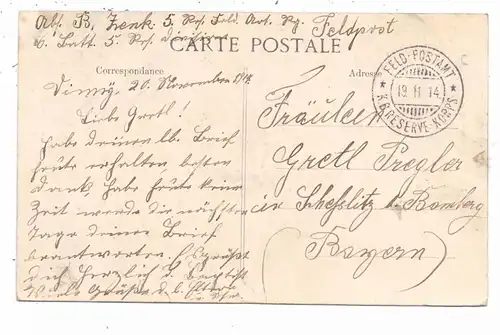 Abs. B. Zenk. 5. Res. Feld Art. Rg.
Feldpost
6. Batt. 5. Res. Division
CARTE POSTALE
Correspondance
Adresse
FELD-POSTAMT
19 11 14
K.B. RESERVE-KORPS
20. November 1914
Liebe Gretl!
Habe deinen lb. Brief
heute erhalten besten
Dank, habe heute keine
Zeit werde die nächsten
Tage deinen Brief
beantworten. Es grüßt
dich herzlich
Viele Grüße
Fräulein
Gretl Pregler
in Scheßlitz b. Bamberg
(Bayern)